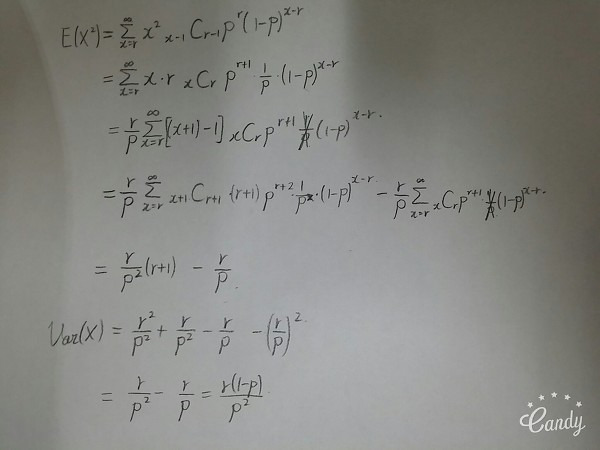 E(X²) = Σ_{x=r}^{∞} x² ₓ₋₁Cᵣ₋₁ pʳ (1-p)^{x-r}
= Σ_{x=r}^{∞} x · r ₓCᵣ p^{r+1} · 1/p · (1-p)^{x-r}
= r/p Σ_{x=r}^{∞} [(x+1)-1] ₓCᵣ p^{r+1} (1-p)^{x-r}.
= r/p Σ_{x=r}^{∞} ₓ₊₁Cᵣ₊₁ (r+1) p^{r+2} · 1/p · (1-p)^{x-r} - r/p Σ_{x=r}^{∞} ₓCᵣ p^{r+1} (1-p)^{x-r}.
= r/p² (r+1) - r/p.
Var(X) = r²/p² + r/p² - r/p - (r/p)².
= r/p² - r/p = r(1-p)/p²
Candy